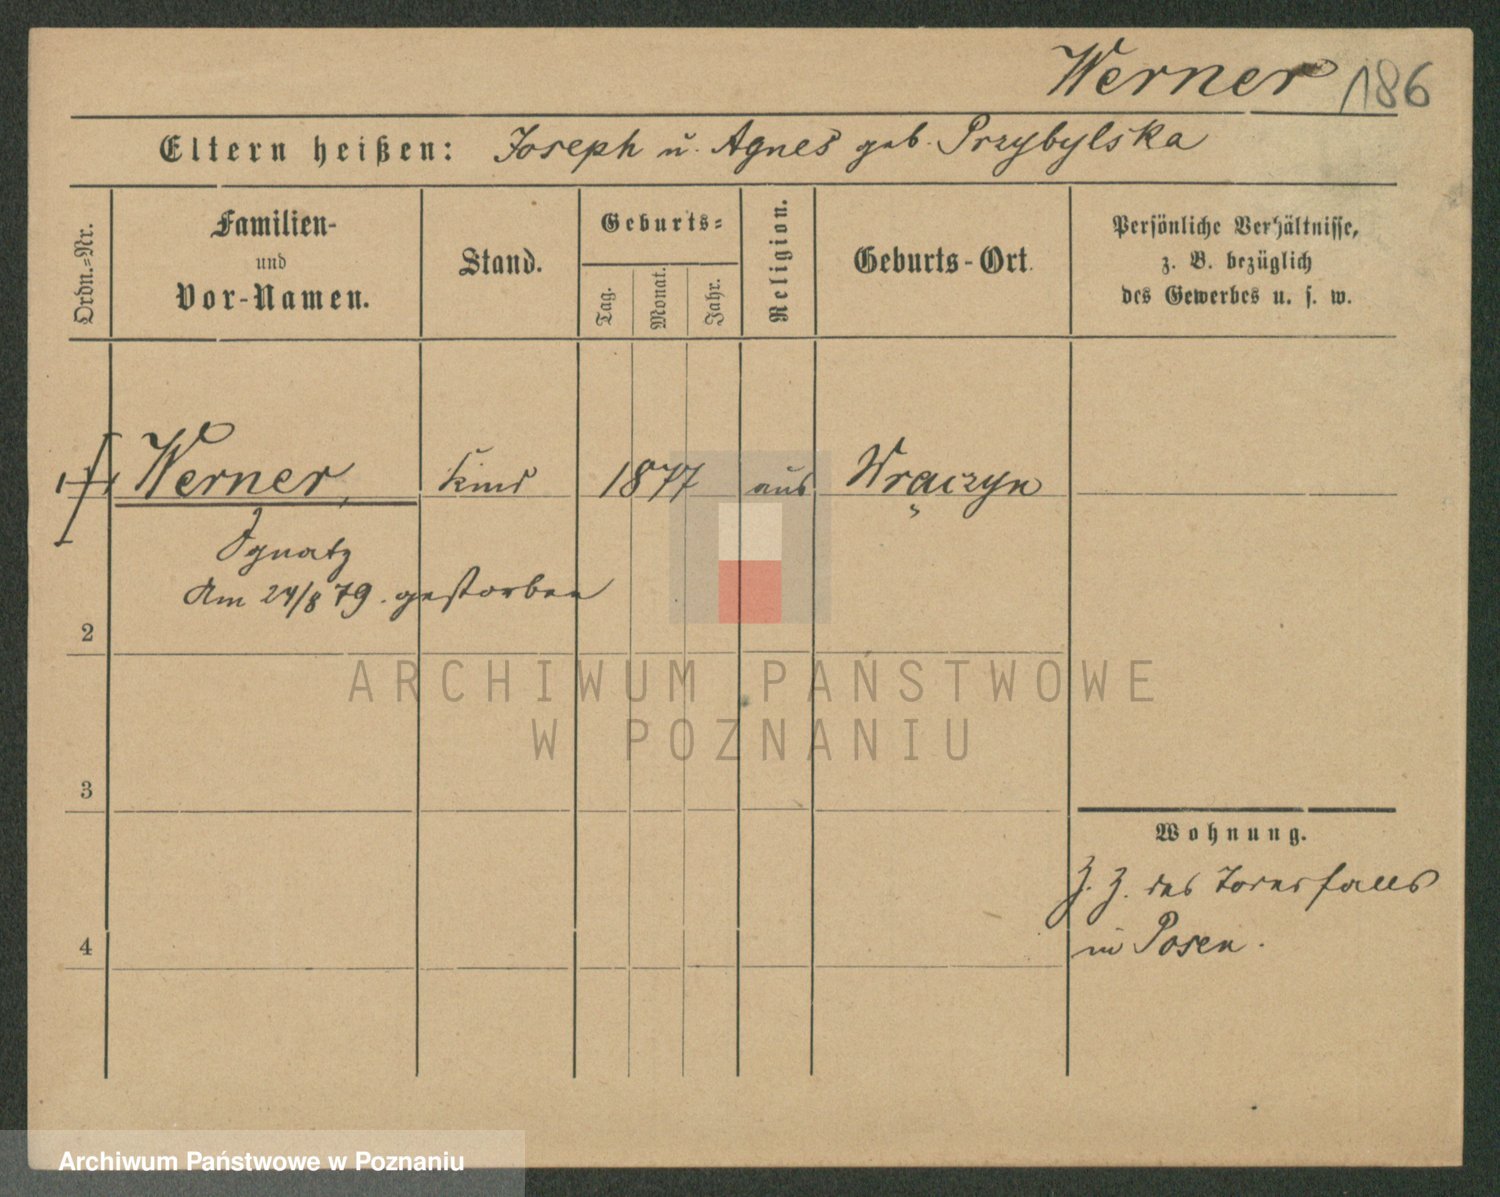 Werner 186
Eltern heißen: Joseph u. Agnes geb. Przybylska
Ordn.=Nr.
Familien-
und
Vor-Namen.
Stand.
Geburts=
Tag.
Monat.
Jahr.
Religion.
Geburts-Ort.
Persönliche Verhältnisse,
z. B. bezüglich
des Gewerbes u. s. w.
1 Werner, Kind 1877 aus Wrączyn
Ignatz
Am 24/8 79. gestorben
2
ARCHIWUM PAŃSTWOWE
W POZNANIU
3
Wohnung.
Z. Z. des Todesfalls
in Posen.
4
Archiwum Państwowe w Poznaniu